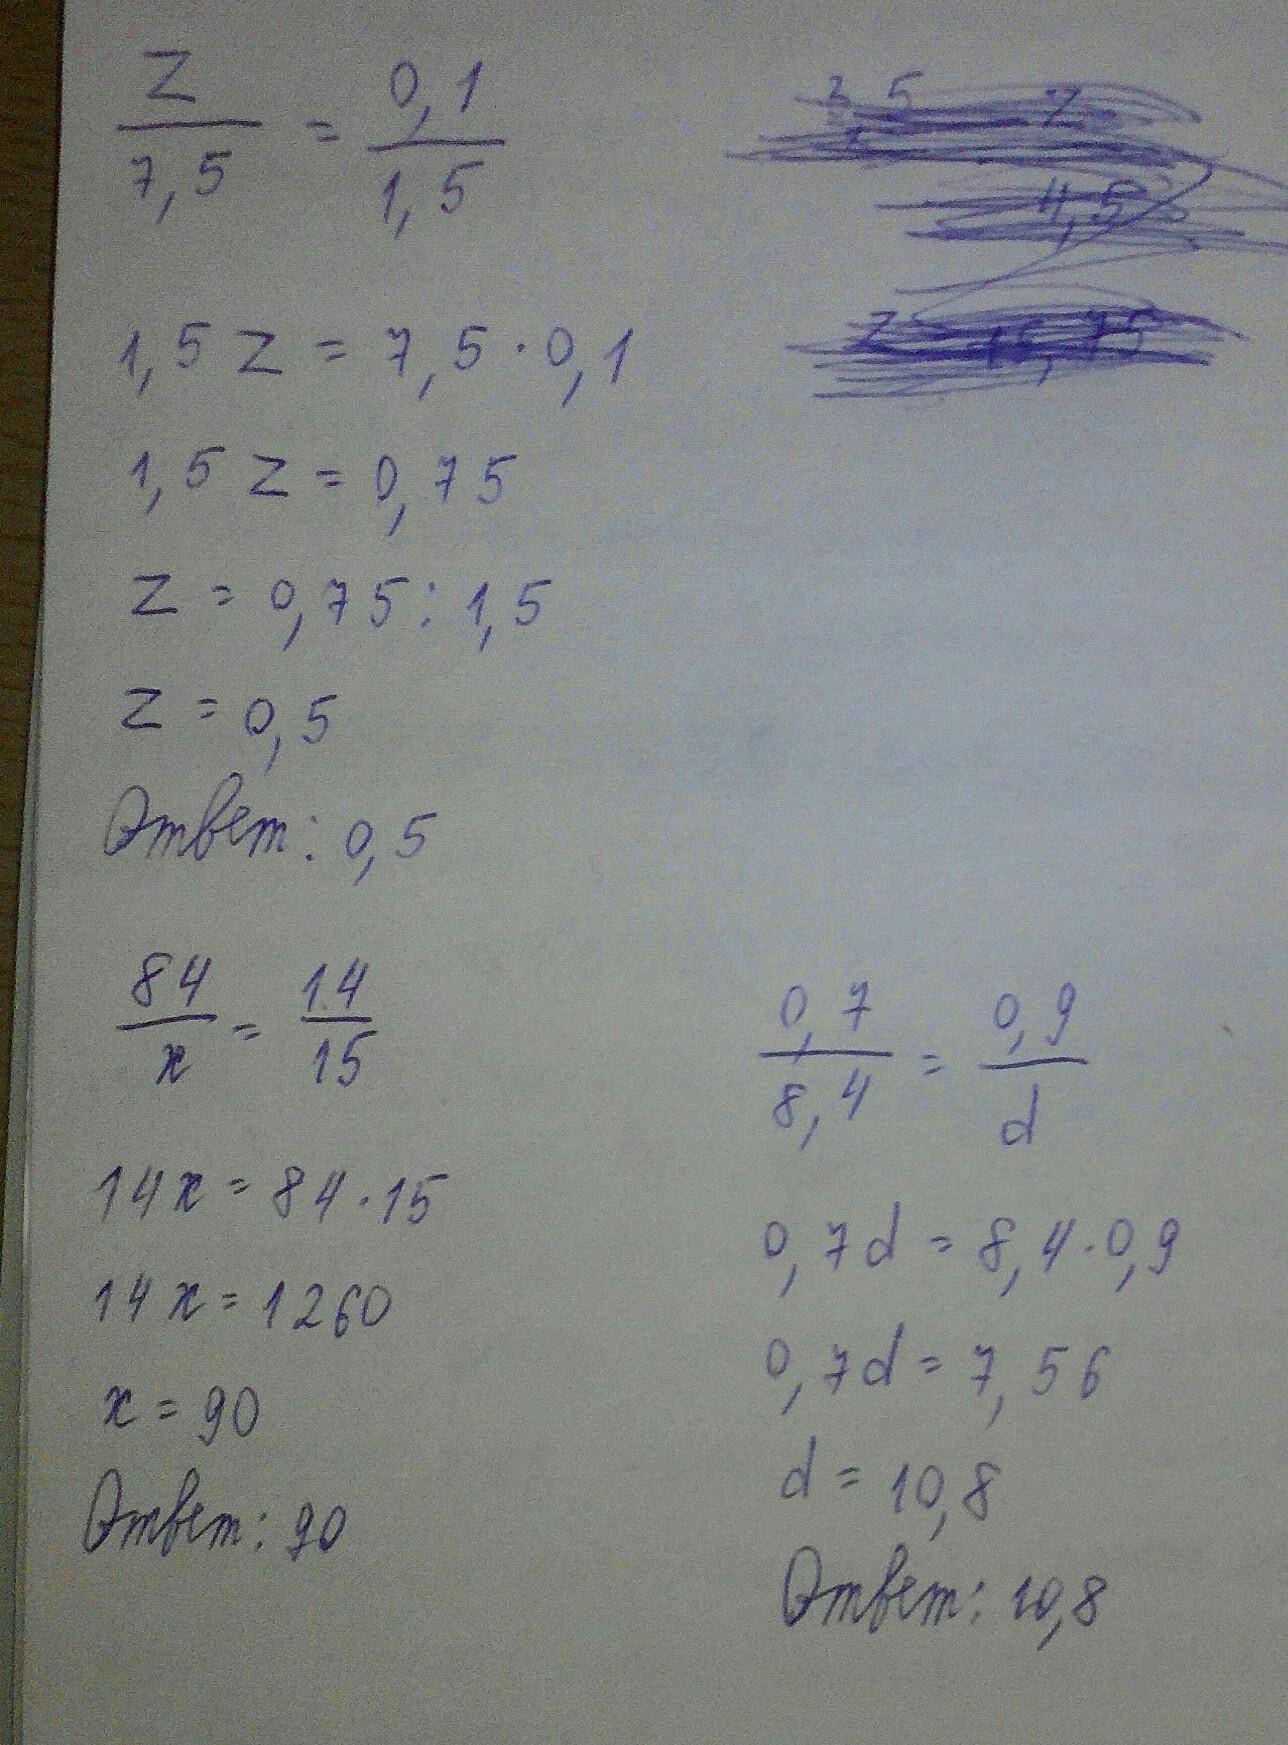 z/7,5 = 0,1/1,5
1,5z = 7,5·0,1
1,5z = 0,75
z = 0,75:1,5
z = 0,5
Ответ: 0,5
84/x = 14/15
14x = 84·15
14x = 1260
x = 90
Ответ: 90
0,7/8,4 = 0,9/d
0,7d = 8,4·0,9
0,7d = 7,56
d = 10,8
Ответ: 10,8